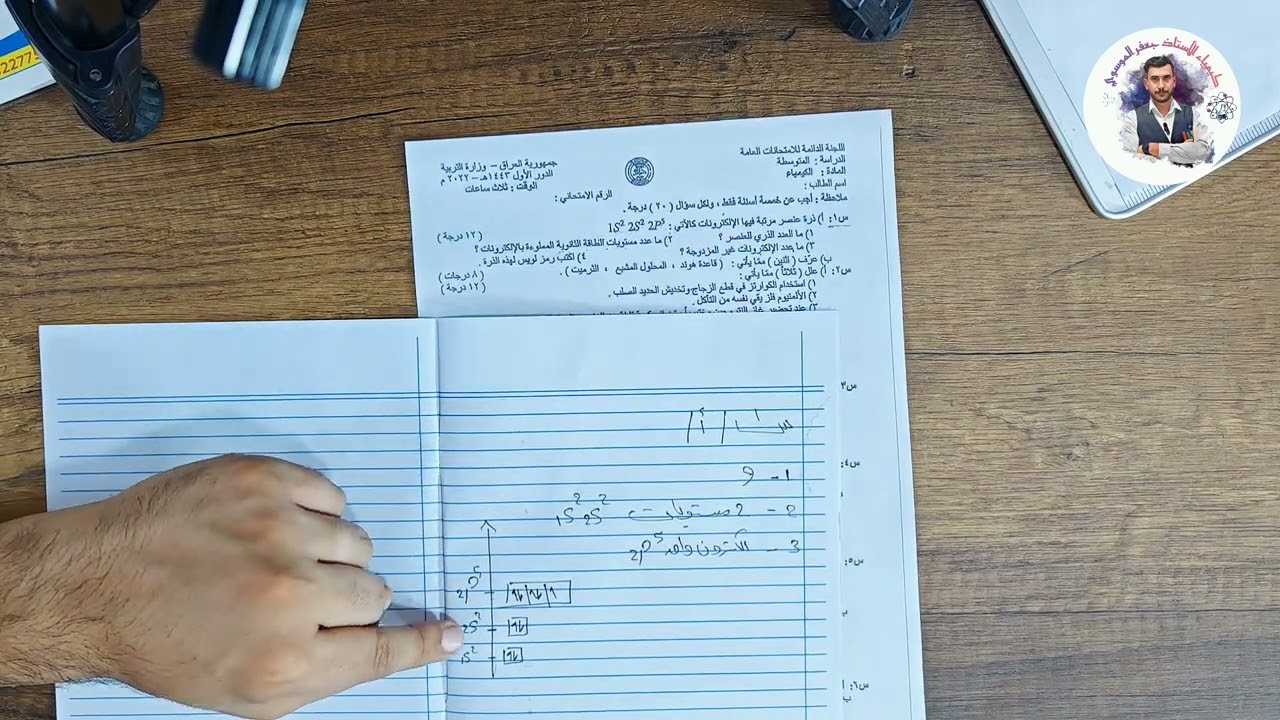 كيمياء الأستاذ جعفر الموسوي
اللجنة الدائمة للامتحانات العامة
الدراسة : المتوسطة
المادة : الكيمياء
اسم الطالب :
جمهورية العراق - وزارة التربية
الدور الأول ١٤٤٣هـ - ٢٠٢٢ م
الوقت : ثلاث ساعات
الرقم الامتحاني :
ملاحظة : أجب عن خمسة أسئلة فقط ، ولكل سؤال ( ٢٠ ) درجة .
س١: أ) ذرة عنصر مرتبة فيها الإلكترونات كالآتي : 1S² 2S² 2P⁵
( ١٢ درجة )
١) ما العدد الذري للعنصر ؟ ٢) ما عدد مستويات الطاقة الثانوية المملوءة بالإلكترونات ؟
٣) ما عدد الإلكترونات غير المزدوجة ؟ ٤) اكتب رمز لويس لهذه الذرة .
ب) عرّف ( اثنين ) مما يأتي : ( قاعدة هوند ، المحلول المشبع ، الثرميت ) . ( ٨ درجات )
س٢: أ) علل ( ثلاثاً ) مما يأتي : ( ١٢ درجة )
١) استخدام الكوارتز في قطع الزجاج وتخديش الحديد الصلب .
٢) الألمنيوم فلز يقي نفسه من التآكل .
س٣
س٤:
س٥:
س٦: أ
ب
س١ / أ /
1- 9
2- 2 مستويات 1S² 2S²
3- الكترون واحد 2P⁵
2P⁵
2S²
1S²
22775